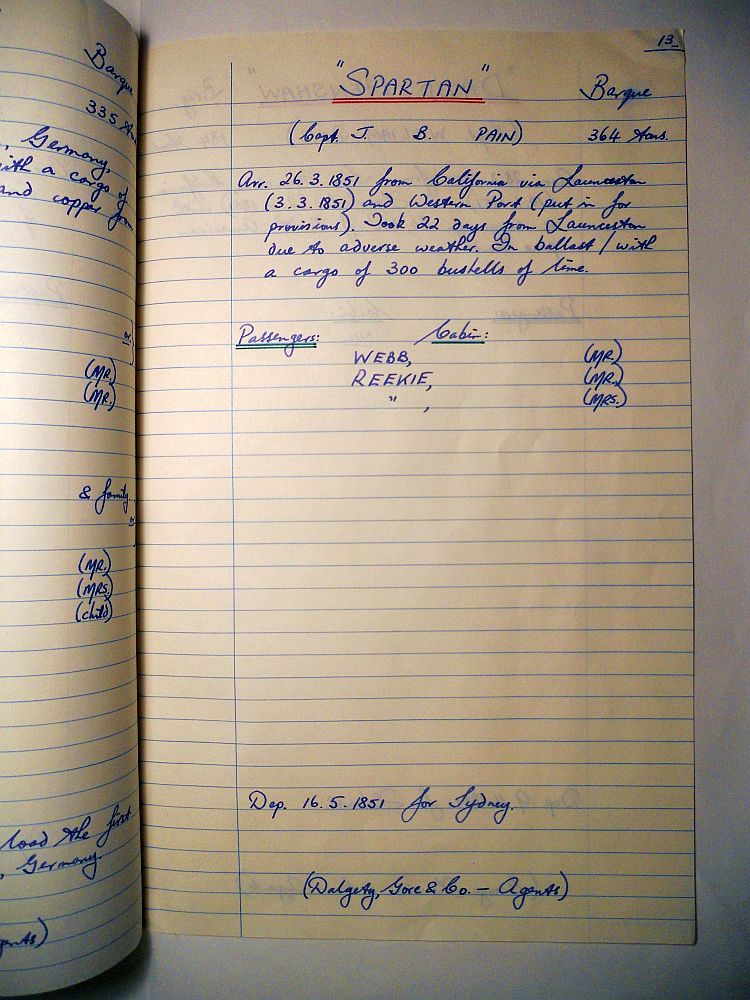 Barque
335 tons
, Germany,
with a cargo of
and copper from
(MR.)
(MR.)
& family.
(MR.)
(MRS.)
(child)
load the first
, Germany.
13.
"SPARTAN" Barque
(Capt. J. B. PAIN) 364 tons.
Arr. 26.3.1851 from California via Launceston
(3.3.1851) and Western Port (put in for
provisions). Took 22 days from Launceston
due to adverse weather. In ballast / with
a cargo of 300 bushells of lime.
Passengers: Cabin:
WEBB, (MR.)
REEKIE, (MR.)
" , (MRS.)
Dep. 16.5.1851 for Sydney.
(Dalgety, Gore & Co. - Agents)